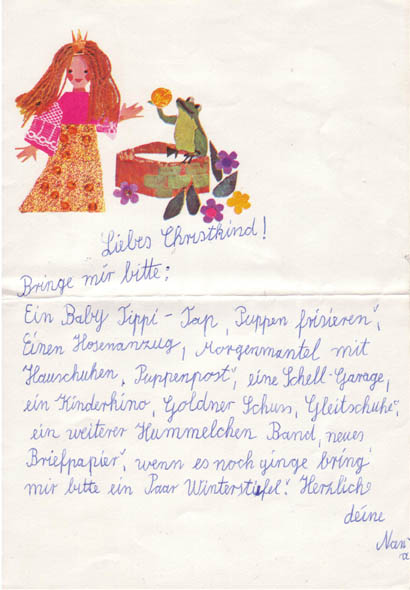 Liebes Christkind!
Bringe mir bitte:
Ein Baby Tippi-Tap, „Puppen frisieren“,
Einen Hosenanzug, Morgenmantel mit
Hauschuhen, „Puppenpost“, eine Schell-Garage,
ein Kinderkino, Goldner Schuss, „Gleitschuhe“,
ein weiterer Hummelchen Band, neues
Briefpapier“, wenn es noch ginge bring'
mir bitte ein Paar Winterstiefel! Herzlich
deine